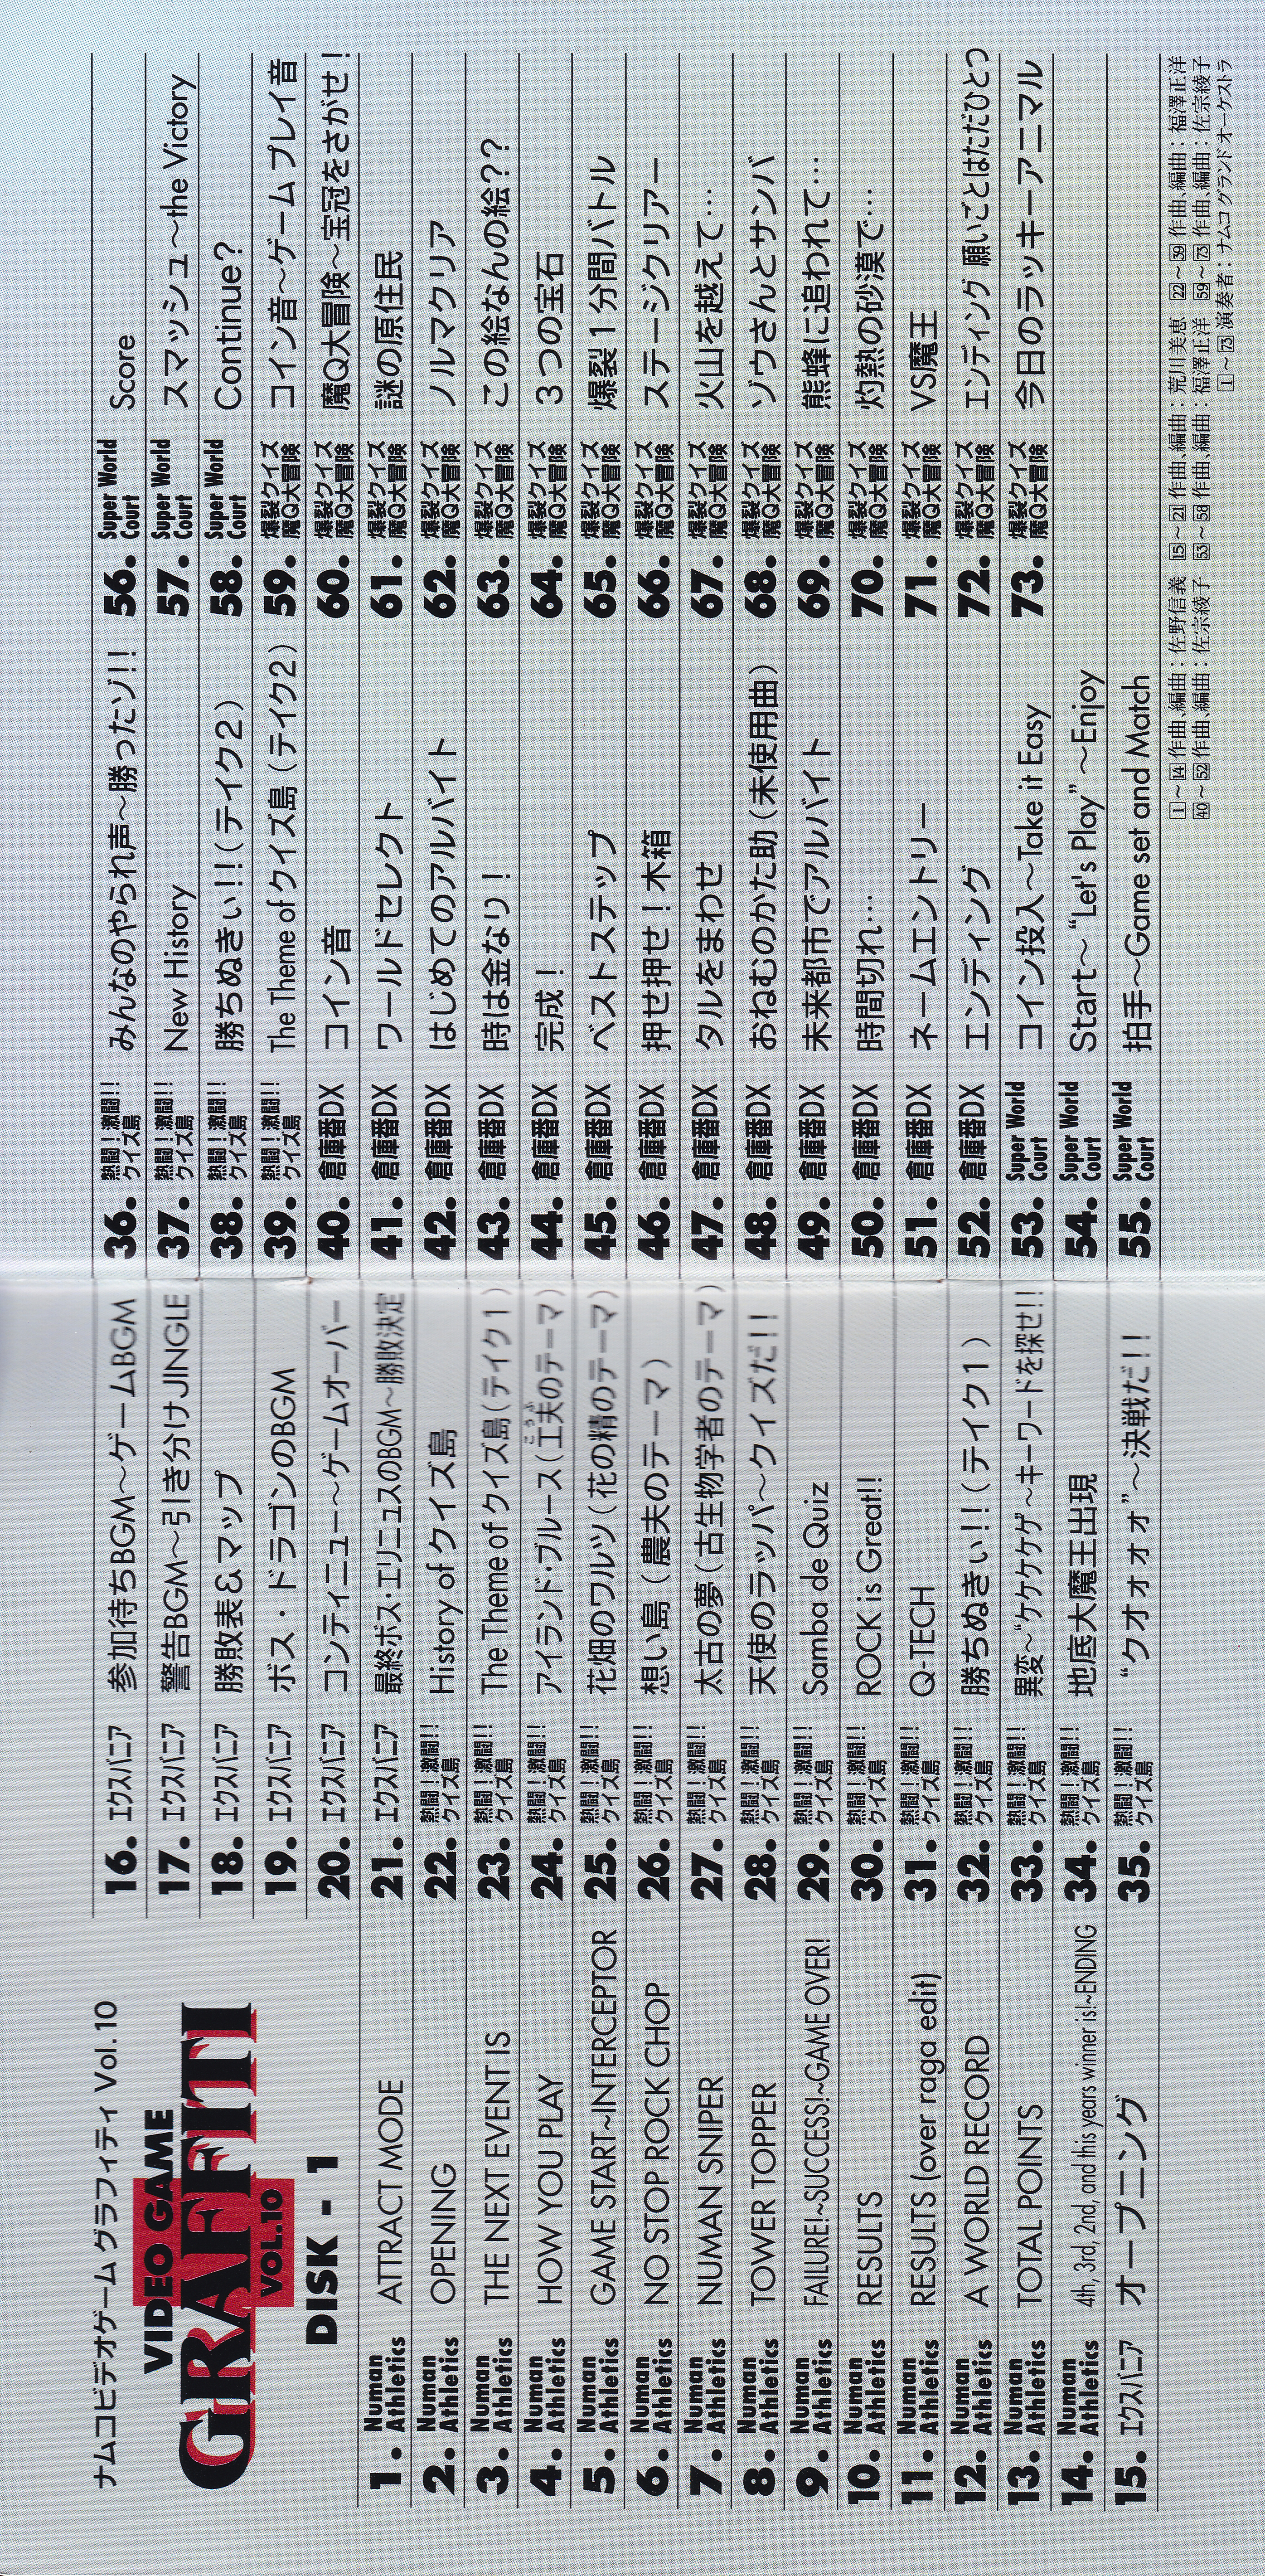 ナムコビデオゲーム グラフィティ Vol.10
VIDEO GAME
GRAFFITI
VOL.10
DISK - 1
1. Numan Athletics ATTRACT MODE
2. Numan Athletics OPENING
3. Numan Athletics THE NEXT EVENT IS
4. Numan Athletics HOW YOU PLAY
5. Numan Athletics GAME START~INTERCEPTOR
6. Numan Athletics NO STOP ROCK CHOP
7. Numan Athletics NUMAN SNIPER
8. Numan Athletics TOWER TOPPER
9. Numan Athletics FAILURE!~SUCCESS!~GAME OVER!
10. Numan Athletics RESULTS
11. Numan Athletics RESULTS (over raga edit)
12. Numan Athletics A WORLD RECORD
13. Numan Athletics TOTAL POINTS
14. Numan Athletics 4th, 3rd, 2nd, and this years winner is!~ENDING
15. エクスバニア オープニング
16. エクスバニア 参加待ちBGM〜ゲームBGM
17. エクスバニア 警告BGM〜引き分けJINGLE
18. エクスバニア 勝敗表&マップ
19. エクスバニア ボス・ドラゴンのBGM
20. エクスバニア コンティニュー〜ゲームオーバー
21. エクスバニア 最終ボス・エリニュスのBGM〜勝敗決定
22. 熱闘!激闘!!クイズ島 History of クイズ島
23. 熱闘!激闘!!クイズ島 The Theme of クイズ島(テイク1)
24. 熱闘!激闘!!クイズ島 アイランド・ブルース(工夫のテーマ)
こうふ
25. 熱闘!激闘!!クイズ島 花畑のワルツ(花の精のテーマ)
26. 熱闘!激闘!!クイズ島 想い島(農夫のテーマ)
27. 熱闘!激闘!!クイズ島 太古の夢(古生物学者のテーマ)
28. 熱闘!激闘!!クイズ島 天使のラッパ〜クイズだ!!
29. 熱闘!激闘!!クイズ島 Samba de Quiz
30. 熱闘!激闘!!クイズ島 ROCK is Great!!
31. 熱闘!激闘!!クイズ島 Q-TECH
32. 熱闘!激闘!!クイズ島 勝ちぬきぃ!!(テイク1)
33. 熱闘!激闘!!クイズ島 異変〜“ケケケケゲ”〜キーワードを探せ!!
34. 熱闘!激闘!!クイズ島 地底大魔王出現
35. 熱闘!激闘!!クイズ島 “クオォォォ”〜決戦だ!!
36. 熱闘!激闘!!クイズ島 みんなのやられ声〜勝ったゾ!!
37. 熱闘!激闘!!クイズ島 New History
38. 熱闘!激闘!!クイズ島 勝ちぬきぃ!!(テイク2)
39. 熱闘!激闘!!クイズ島 The Theme of クイズ島(テイク2)
40. 倉庫番DX コイン音
41. 倉庫番DX ワールドセレクト
42. 倉庫番DX はじめてのアルバイト
43. 倉庫番DX 時は金なり!
44. 倉庫番DX 完成!
45. 倉庫番DX ベストステップ
46. 倉庫番DX 押せ押せ!木箱
47. 倉庫番DX タルをまわせ
48. 倉庫番DX おねむのかた助(未使用曲)
49. 倉庫番DX 未来都市でアルバイト
50. 倉庫番DX 時間切れ…
51. 倉庫番DX ネームエントリー
52. 倉庫番DX エンディング
53. Super World Court コイン投入〜Take it Easy
54. Super World Court Start〜“Let's Play”〜Enjoy
55. Super World Court 拍手〜Game set and Match
56. Super World Court Score
57. Super World Court スマッシュ〜the Victory
58. Super World Court Continue?
59. 爆裂クイズ魔Q大冒険 コイン音〜ゲームプレイ音
60. 爆裂クイズ魔Q大冒険 魔Q大冒険〜宝冠をさがせ!
61. 爆裂クイズ魔Q大冒険 謎の原住民
62. 爆裂クイズ魔Q大冒険 ノルマクリア
63. 爆裂クイズ魔Q大冒険 この絵なんの絵??
64. 爆裂クイズ魔Q大冒険 3つの宝石
65. 爆裂クイズ魔Q大冒険 爆裂1分間バトル
66. 爆裂クイズ魔Q大冒険 ステージクリアー
67. 爆裂クイズ魔Q大冒険 火山を越えて…
68. 爆裂クイズ魔Q大冒険 ゾウさんとサンバ
69. 爆裂クイズ魔Q大冒険 熊蜂に追われて…
70. 爆裂クイズ魔Q大冒険 灼熱の砂漠で…
71. 爆裂クイズ魔Q大冒険 VS魔王
72. 爆裂クイズ魔Q大冒険 エンディング 願いごとはただひとつ
73. 爆裂クイズ魔Q大冒険 今日のラッキーアニマル
1〜14 作曲、編曲:佐野信義 15〜21 作曲、編曲:荒川美恵 22〜39 作曲、編曲:福澤正洋
40〜52 作曲、編曲:佐宗綾子 53〜58 作曲、編曲:福澤正洋 59〜73 作曲、編曲:佐宗綾子
1〜73 演奏者:ナムコ グランド オーケストラ